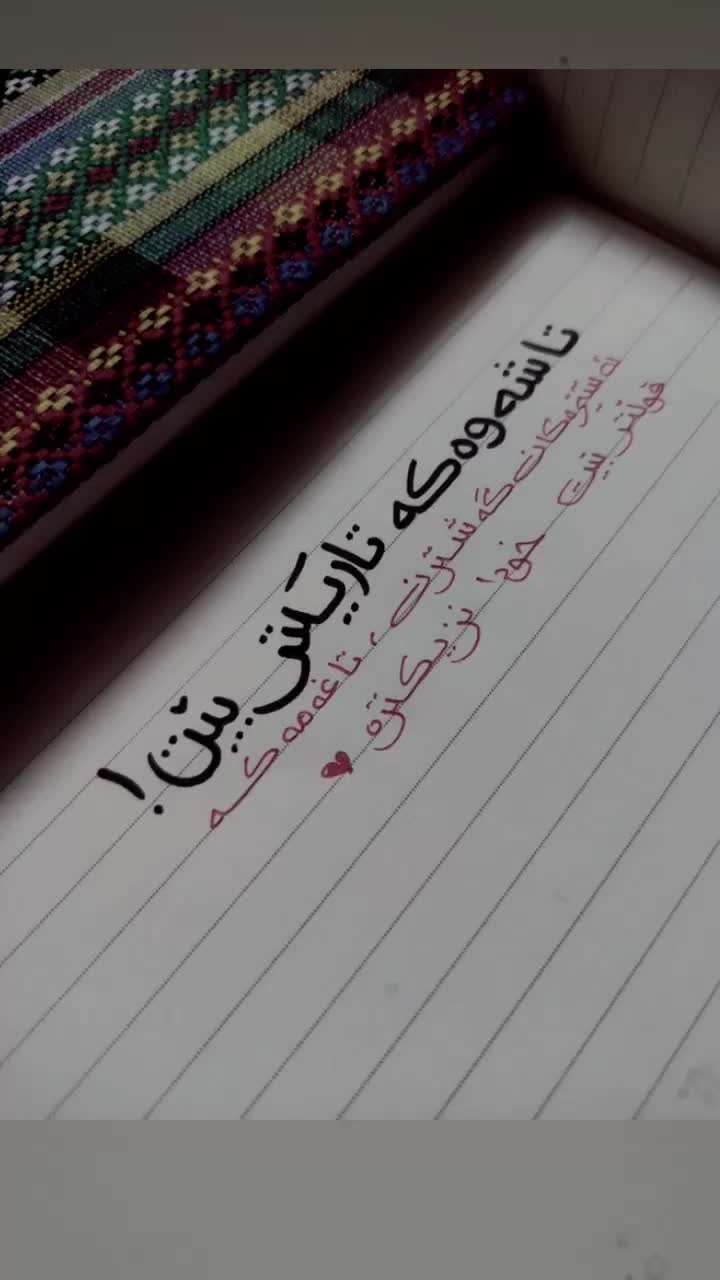 تا شەوەکە تاریکتر بێت!
ئەستێرەکان گەشترن ، تا غەمەکە
قوڵتر بێت خودا نزیکترە ♥